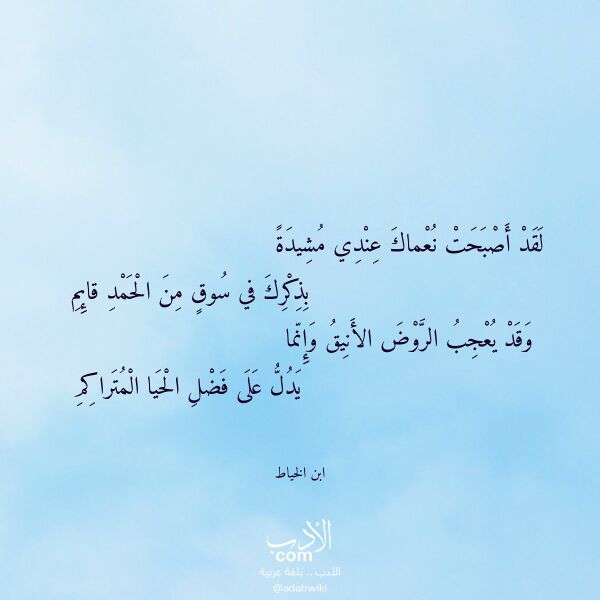 لَقَدْ أَصْبَحَتْ نُعْماكَ عِنْدِي مُشِيدَةً
بِذِكْرِكَ في سُوقٍ مِنَ الْحَمْدِ قائِمِ
وَقَدْ يُعْجِبُ الرَّوْضَ الأَنِيقُ وَإِنّما
يَدُلُّ عَلَى فَضْلِ الْحَيا الْمُتَراكِمِ
ابن الخياط
الأدب
.com
الأدب .. بلغة عربية
@adabwiki